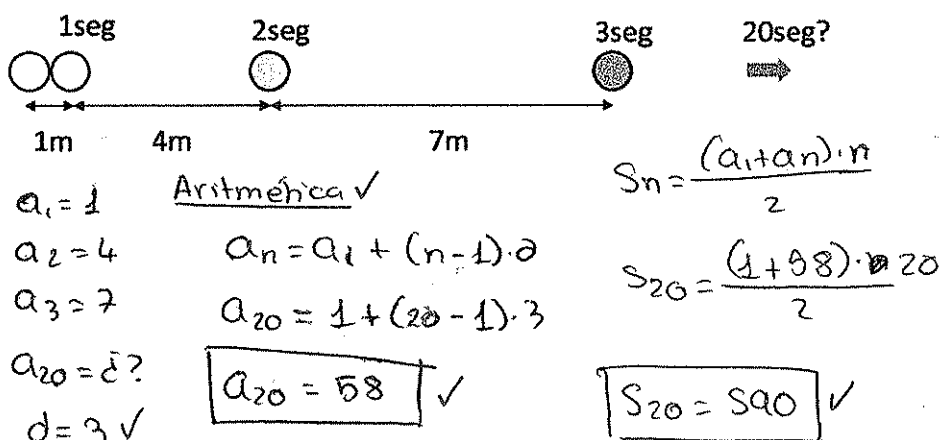 1seg 2seg 3seg 20seg?
1m 4m 7m
a₁ = 1
a₂ = 4
a₃ = 7
a₂₀ = ¿?
d = 3 ✓
Aritmética ✓
aₙ = a₁ + (n-1)·d
a₂₀ = 1 + (20 - 1)·3
a₂₀ = 58 ✓
Sₙ = (a₁ + aₙ)·n / 2
S₂₀ = (1 + 58)·20 / 2
S₂₀ = 590 ✓